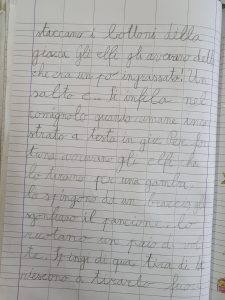 staccano i bottoni della
giacca gli elfi gli avevano detto
che era un po' ingrassato! Un
salto e... si infila nel
comignolo quando rimane inca
strato a testa in giù. Per for
tuna arrivano gli elfi che
lo tirano per una gamba,
lo spingono da un braccio gli
sgonfiano il pancione, lo
ruotano un paio di vol
te. Spingi di qua, tira di là
riescono a tirarlo fuori